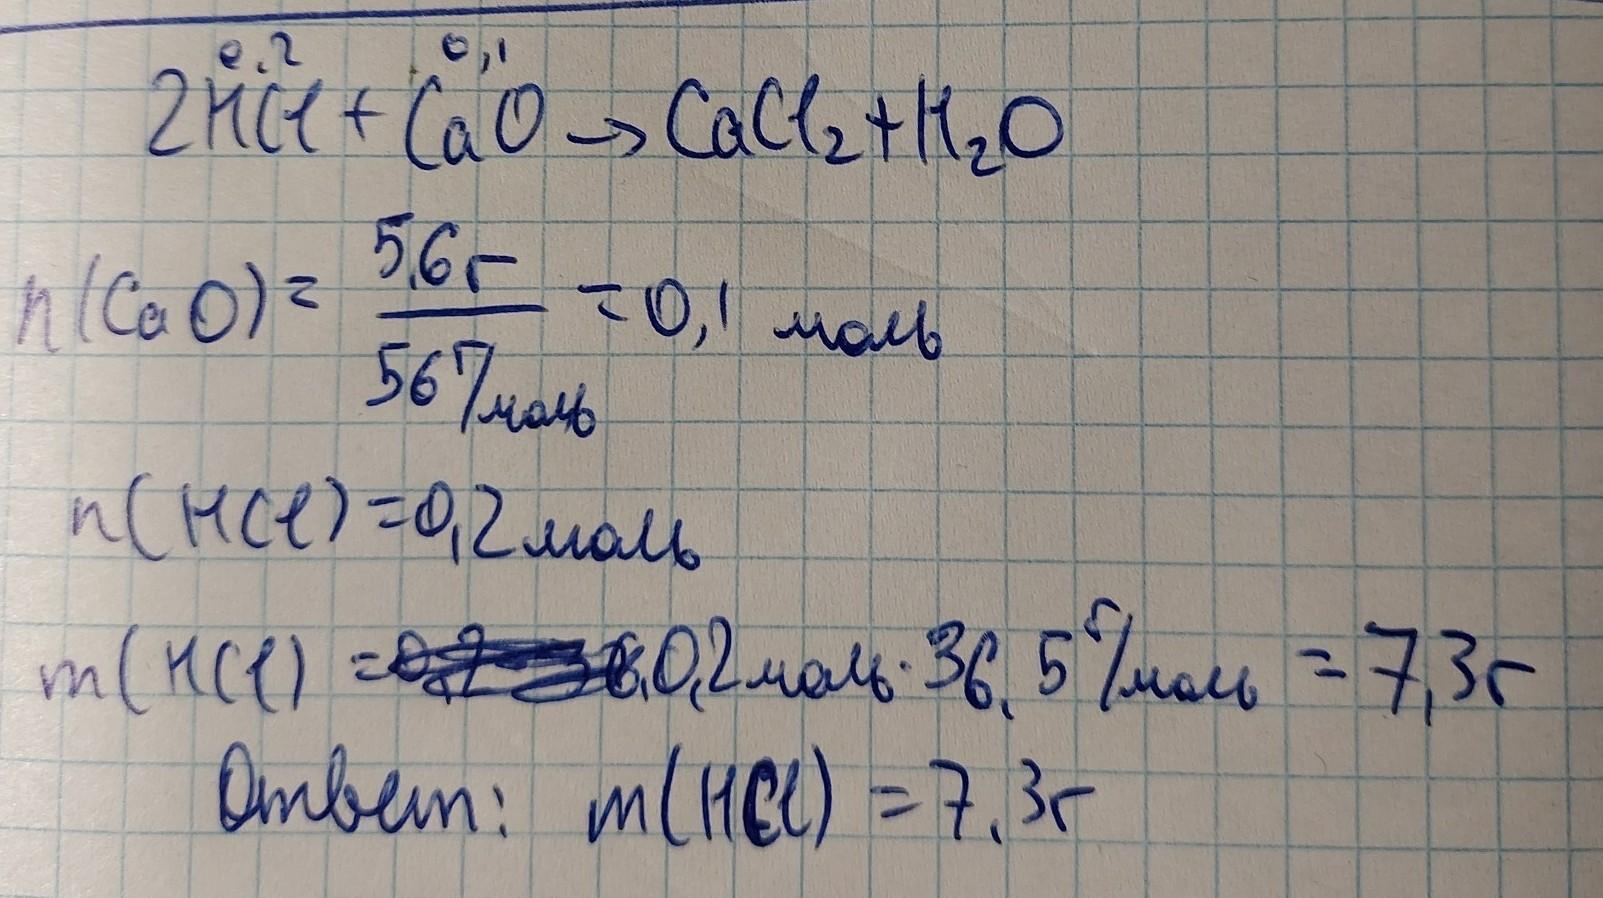 0,2 0,1
2HCl + CaO → CaCl₂ + H₂O
n(CaO) = 5,6 г / 56 г/моль = 0,1 моль
n(HCl) = 0,2 моль
m(HCl) = 0,2 моль · 36,5 г/моль = 7,3 г
Ответ: m(HCl) = 7,3 г